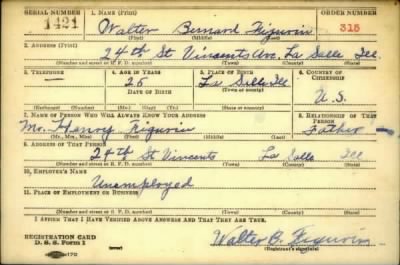 SERIAL NUMBER 1. NAME (Print) ORDER NUMBER
1421 Walter Bernard Figurin 316
(First) (Middle) (Last)
2. ADDRESS (Print)
24th St Vincents Ave. La Salle Ill.
(Number and street or R. F. D. number) (Town) (County) (State)
3. TELEPHONE 4. AGE IN YEARS 5. PLACE OF BIRTH 6. COUNTRY OF CITIZENSHIP
— 26 La Salle
DATE OF BIRTH (Town or county)
Ill U. S.
(Exchange) (Number) (Mo.) (Day) (Yr.) (State or country)
7. NAME OF PERSON WHO WILL ALWAYS KNOW YOUR ADDRESS 8. RELATIONSHIP OF THAT PERSON
Mr. Henry Figurin Father
(Mr., Mrs., Miss) (First) (Middle) (Last)
9. ADDRESS OF THAT PERSON
24th St Vincents La Salle Ill
(Number and street or R. F. D. number) (Town) (County) (State)
10. EMPLOYER'S NAME
Unemployed
11. PLACE OF EMPLOYMENT OR BUSINESS
(Number and street or R. F. D. number) (Town) (County) (State)
I AFFIRM THAT I HAVE VERIFIED ABOVE ANSWERS AND THAT THEY ARE TRUE.
REGISTRATION CARD
D. S. S. Form 1 Walter B. Figurin
(Registrant's signature)